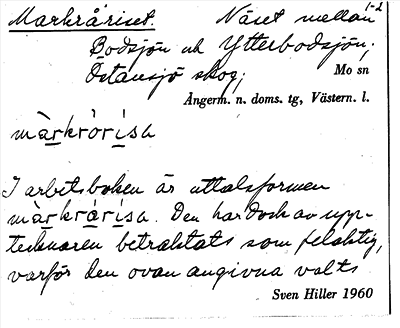 Markråriset. Näset mellan 1-2
Bodsjön och Ytterbodsjön;
Östansjö skog; Mo sn
Ångerm. n. doms. tg, Västern. l.
màrkròrísa
I arbetsboken är uttalsformen
màrkràrísa. Den har dock av upp-
tecknaren betraktats som felaktig,
varför den ovan angivna valts
Sven Hiller 1960